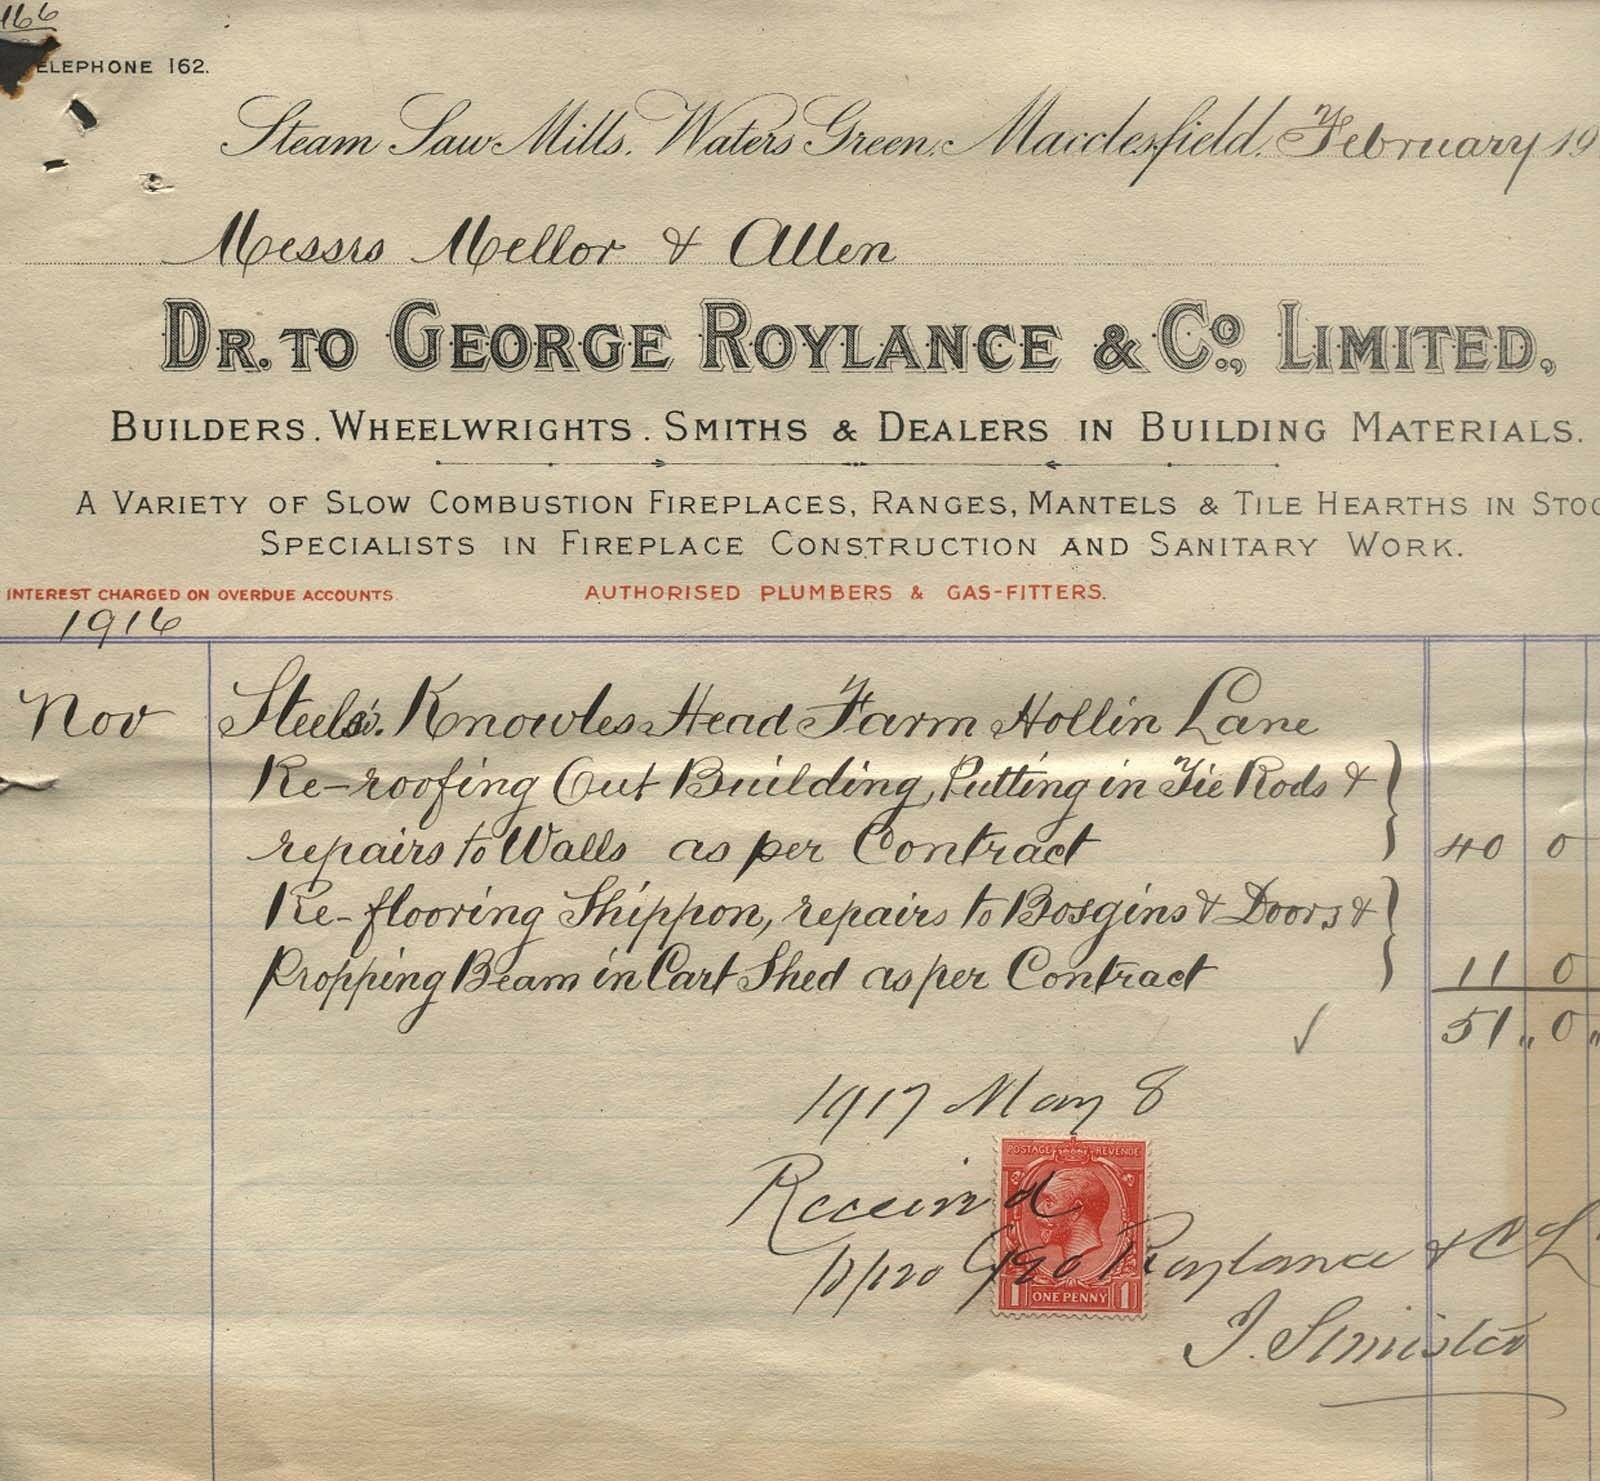 166
ELEPHONE 162.
Steam Saw Mills, Waters Green, Macclesfield, February 19
Messrs Mellor & Allen
DR. TO GEORGE ROYLANCE & Co., LIMITED,
BUILDERS. WHEELWRIGHTS. SMITHS & DEALERS IN BUILDING MATERIALS.
A VARIETY OF SLOW COMBUSTION FIREPLACES, RANGES, MANTELS & TILE HEARTHS IN STOC
SPECIALISTS IN FIREPLACE CONSTRUCTION AND SANITARY WORK.
INTEREST CHARGED ON OVERDUE ACCOUNTS. AUTHORISED PLUMBERS & GAS-FITTERS.
1916
Nov Knowles Head Farm Hollin Lane
Re-roofing Out Building, Putting in Tie Rods &
repairs to Walls as per Contract 40 0
Re-flooring Shippon, repairs to Bosgins & Doors &
Propping Beam in Cart Shed as per Contract 11 0
51 " 0 "
1917 May 8
POSTAGE REVENUE
Received
Geo Roylance & C L
1 ONE PENNY 1
J. Simister